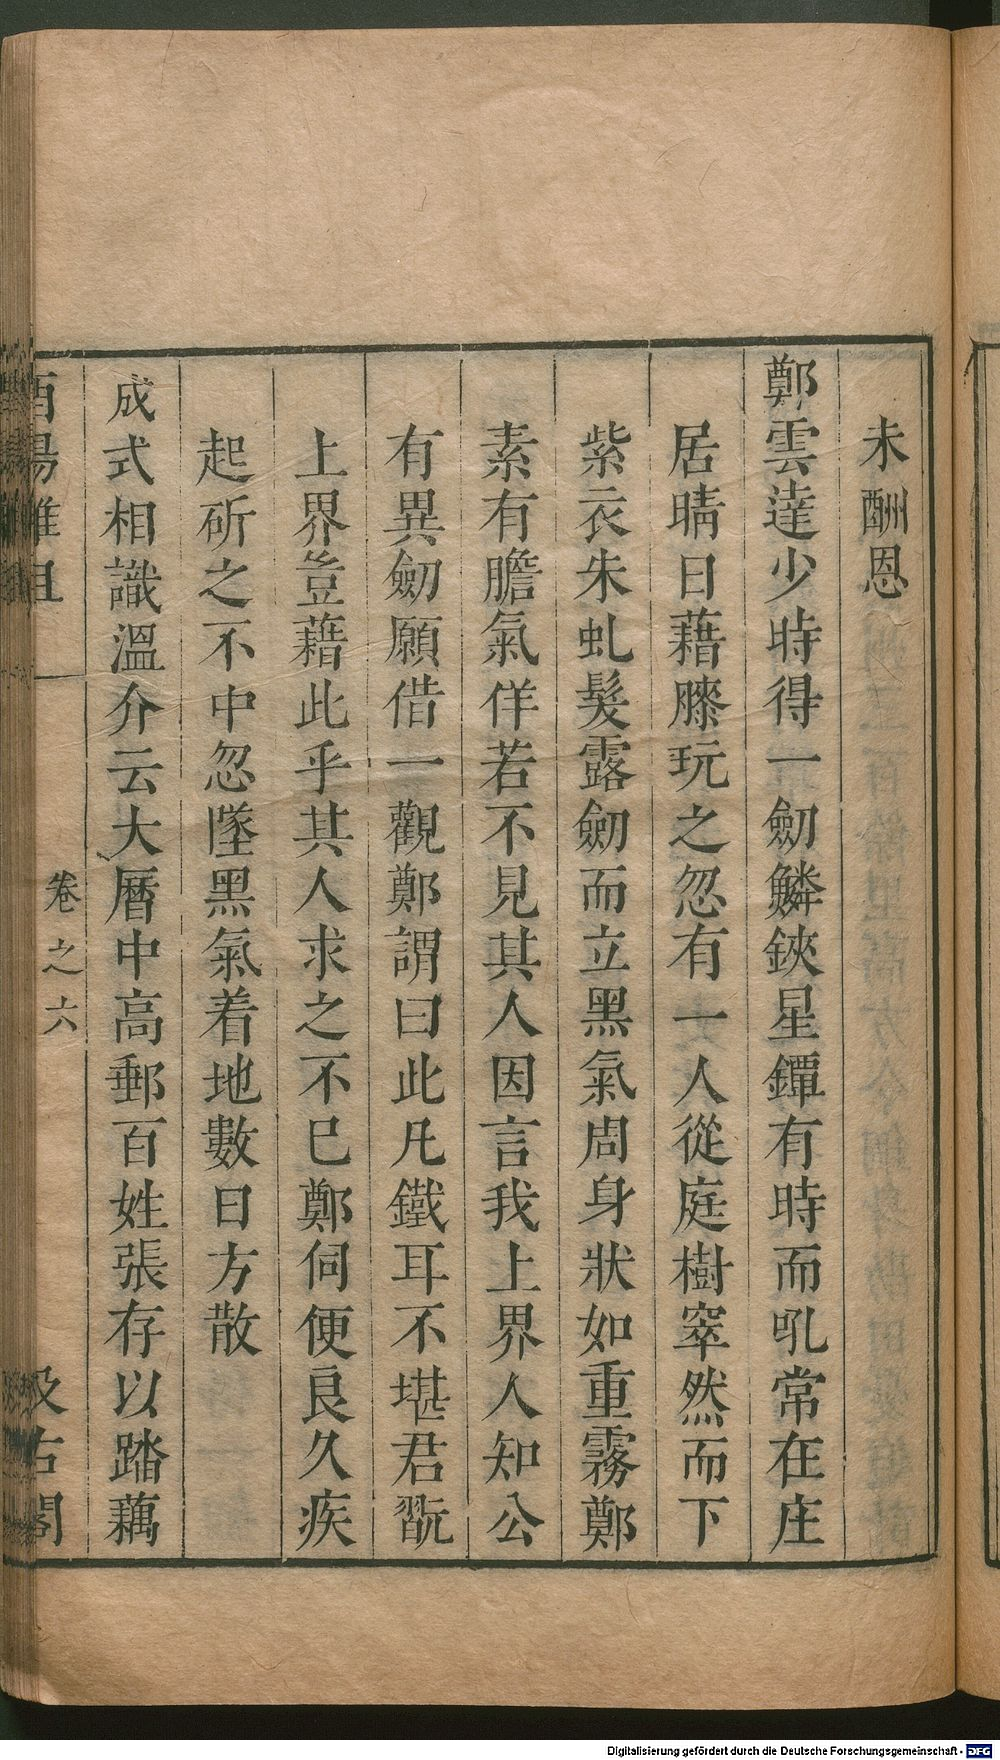 未酬恩
鄭雲逹少時得一劒鱗鋏星鐔有時而吼常在庄
居晴日藉膝玩之忽有一人從庭樹窣然而下
紫衣朱虬髮露劒而立黑氣周身狀如重霧鄭
素有膽氣佯若不見其人因言我上界人知公
有異劒願借一觀鄭謂曰此凡鐵耳不堪君翫
上界豈藉此乎其人求之不已鄭伺便良久疾
起斫之不中忽墜黑氣着地數日方散
成式相識溫介云大曆中高郵百姓張存以踏藕
酉陽雜俎 卷之六 汲古閣
Digitalisierung gefördert durch die Deutsche Forschungsgemeinschaft - DFG